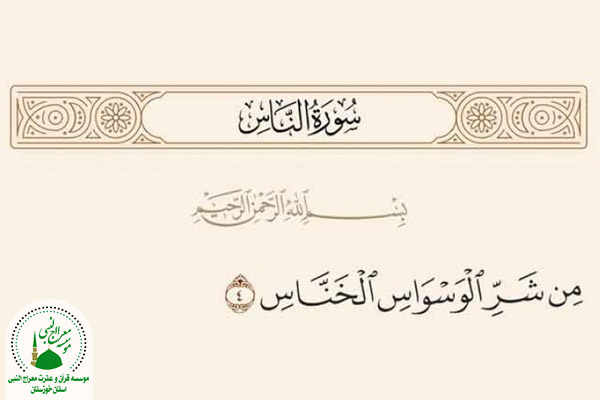 سُورَةُ النَّاسِ
بِسْمِ ٱللَّهِ ٱلرَّحْمَٰنِ ٱلرَّحِيمِ
مِن شَرِّ ٱلْوَسْوَاسِ ٱلْخَنَّاسِ ٤
موسسه معراج النبی
موسسه قرآن و عترت معراج النبی
استان خوزستان